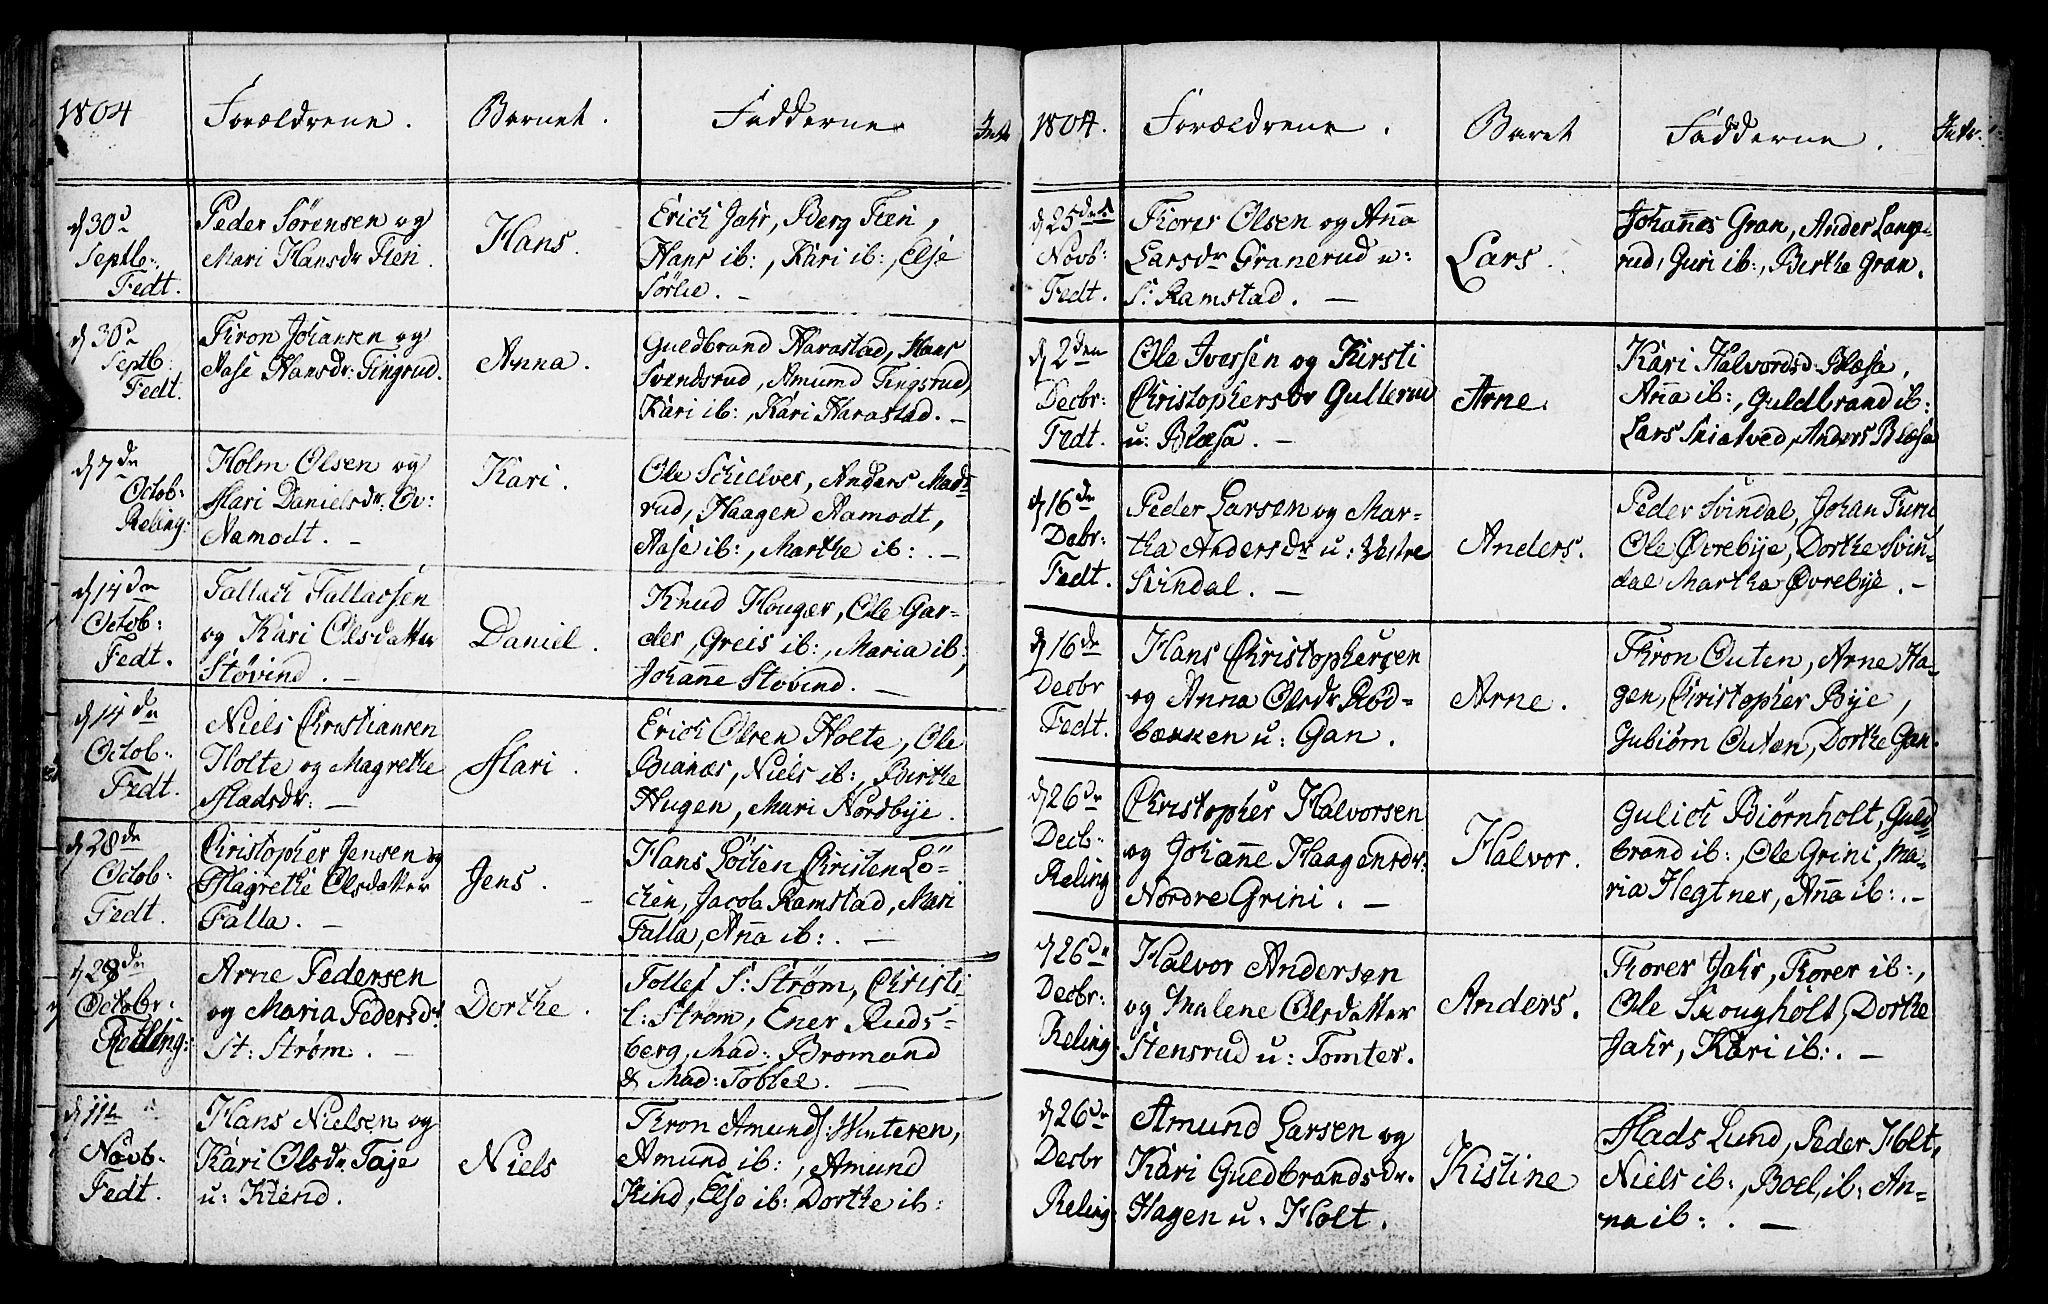 1804
Forældrene.
Barnet.
Fadderne
Int
d 30d
Septb:
Fedt.
Peder Sørensen og
Mari Hansdr Fien.
Hans.
Erich Jahr, Berg Fien,
Hans ib:, Kari ib:, Elje
Sørlie. —
d 30d
Septb:
Fedt.
Thron Johansen og
Aase Hansdr: Tingrud.
Anna.
Guldbrand Harastad, Hans
Svendsrud, Amund Tingsrud,
Kari ib:, Kari Harastad. —
d 7de
Octob:
Reling:
Holm Olsen og
Mari Danielsdr: Ov:
Aamodt. —
Kari.
Ole Schilver, Anders Mads
rud, Haagen Aamodt,
Aase ib:, Marthe ib:. —
d 14de
Octob:
Fedt.
Tallach Tallacsen
og Kari Olsdatter
Støvind. —
Daniel.
Knud Houger, Ole Gar-
der, Greis ib:, Maria ib:,
Johanne Stovind. —
d 14de
Octob:
Fedt.
Niels Christiansen
Holte og Magrethe
Madsdr: —
Mari.
Erich Olsen Holte, Ole
Bianæs, Niels ib:, Birthe
Hugen, Mari Nordbye.
d 28de
Octob:
Fedt.
Christopher Jensen og
Magrethe Olsdatter
Falla. —
Jens.
Hans Löken, Christen Lö-
chen, Jacob Ramstad, Mari
Falla, Anna ib:. —
d 28de
Octobr:
Reling:
Arne Pedersen
og Maria Pedersdr
St: Strøm. —
Dorthe.
Tollef S: Strøm, Christi
L: Strøm, Ener Ruds-
berg, Mad: Bromand
& Mad: Toblel. —
d 11te
Novb.
Fedt.
Hans Nielsen og
Kari Olsdr Taje
u: Kiend.
Niels
Thron Amunds: Winteren,
Amund ib:, Amund
Kind, Eljo ib: Dorthe ib:
1804.
Forældrene.
Baret
Fadderne.
Intr:
d 25de
Novb:
Fedt.
Thorer Olsen og Anna
Larsdr Granerud u:
S: Ramstad. —
Lars.
Johannes Gran, Ander Lange-
rud, Guri ib:, Birthe Gran.
d 2den
Decbr:
Fedt.
Ole Iversen og Kirsti
Christophersdr Gullerud
u: Blæsa. —
Arne.
Kari Halvordsd: Blæsa,
Anna ib:, Guldbrand ib:
Lars Skialved, Anders Blæsa
d 16de
Debr:
Fedt.
Peder Larsen og Mar-
tha Andersdr u: Vestre
Svindal. —
Anders.
Peder Svindal, Johan Furu,
Ole Øvrebye, Dorthe Svin-
dal Martha Øvrebye. —
d 16de
Decbr
Fedt.
Hans Christophersen
og Anna Olsdr Rød-
bækken u: Gan.
Arne.
Thron Outen, Arne Ha-
gen, Christopher Bye,
Gubiørn Outen, Dorthe Gan.
d 26de
Decb:
Reling
Christopher Halvorsen
og Johanne Haagensdr:
Nordre Grini. —
Halvor.
Gulich Biørnholt, Guld-
brand ib:, Ole Grini, Ma-
ria Hegtner, Anna ib:. —
d 26de
Decbr:
Reling:
Halvor Andersen
og Malene Olsdatter
Stensrud u: Tomter.
Anders.
Thorer Jahr, Thorer ib:,
Ole Skougholt, Dorthe
Jahr, Kari ib:. —
d 26de
Decbr
Reling:
Amund Larsen og
Kari Guldbrandsdr.
Hagen u: Holt.
Kistine
Mads Lund, Peder Holt,
Niels ib:, Boel ib: An-
na ib:. —